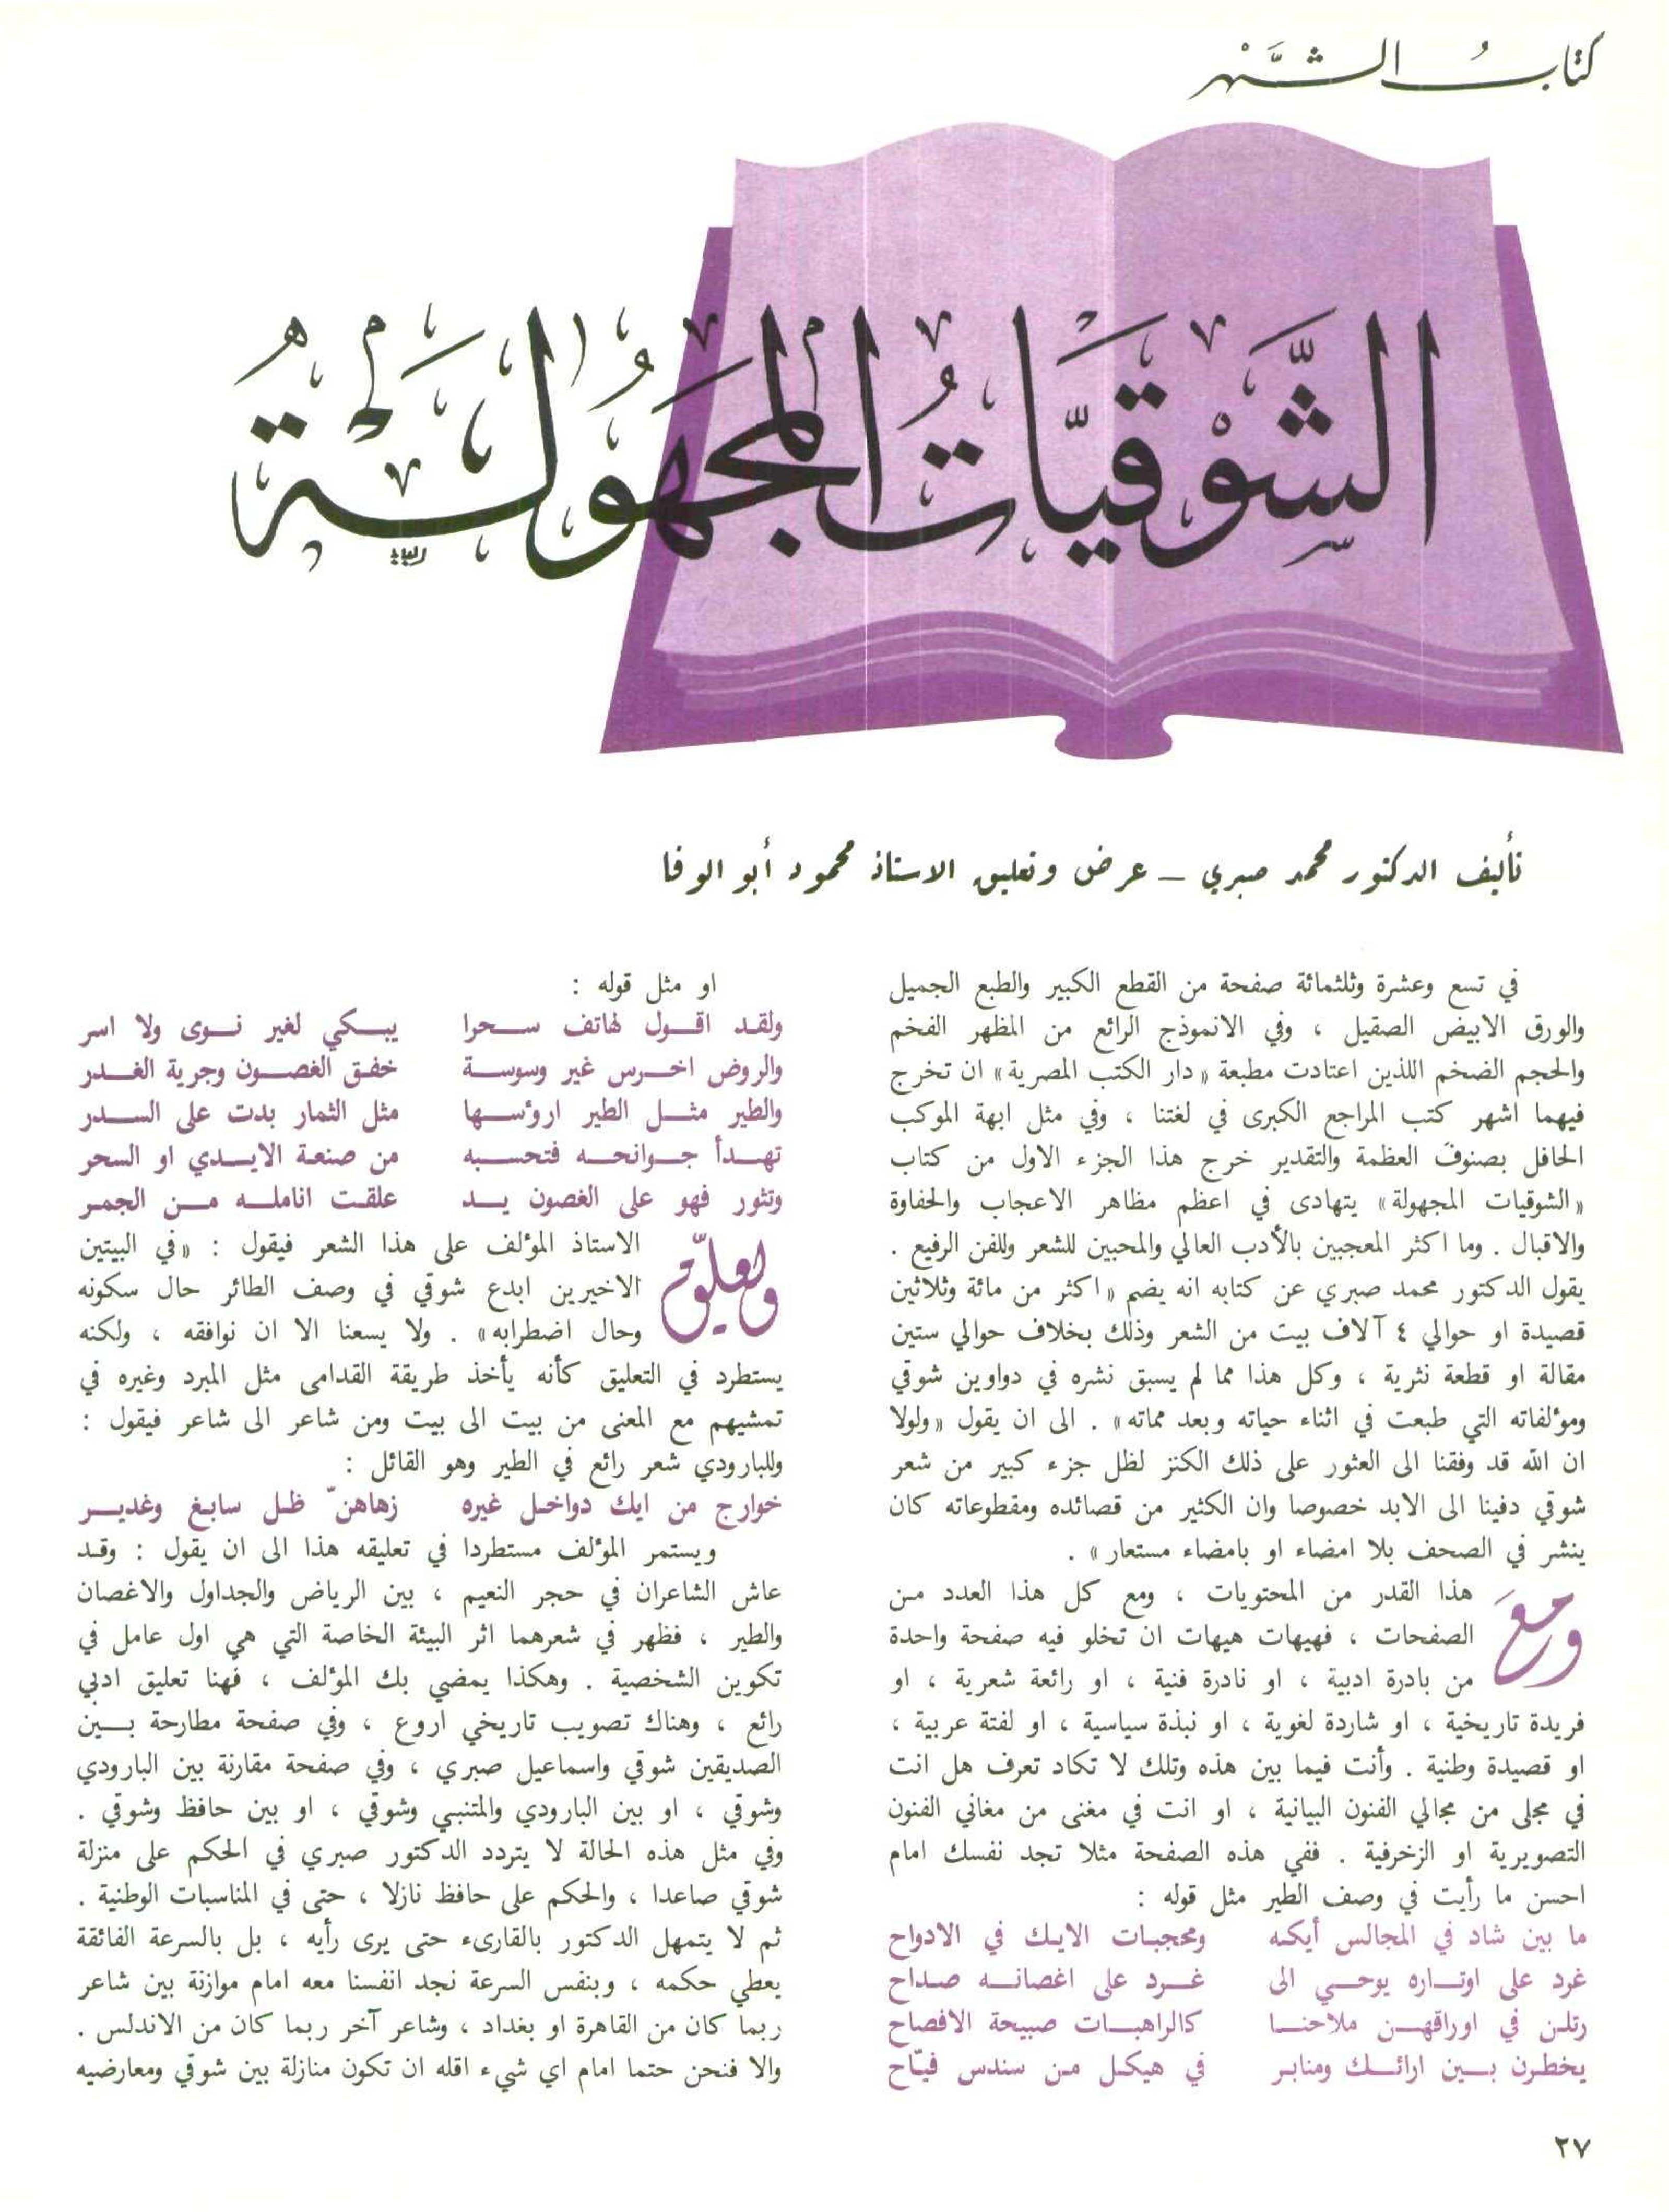 كتاب الشهر
الشوقيات المجهولة
تأليف الدكتور محمد صبري – عرض وتعليق الاستاذ محمود أبو الوفا
في تسع وعشرة وثلثمائة صفحة من القطع الكبير والطبع الجميل
والورق الابيض الصقيل ، وفي الانموذج الرائع من المظهر الفخم
والحجم الضخم اللذين اعتادت مطبعة «دار الكتب المصرية» ان تخرج
فيهما اشهر كتب المراجع الكبرى في لغتنا ، وفي مثل ابهة الموكب
الحافل بصنوف العظمة والتقدير خرج هذا الجزء الاول من كتاب
«الشوقيات المجهولة» يتهادى في اعظم مظاهر الاعجاب والحفاوة
والاقبال . وما اكثر المعجبين بالأدب العالي والمحبين للشعر وللفن الرفيع .
يقول الدكتور محمد صبري عن كتابه انه يضم «اكثر من مائة وثلاثين
قصيدة او حوالي ٤ آلاف بيت من الشعر وذلك بخلاف حوالي ستين
مقالة او قطعة نثرية ، وكل هذا مما لم يسبق نشره في دواوين شوقي
ومؤلفاته التي طبعت في اثناء حياته وبعد مماته» . الى ان يقول «ولولا
ان الله قد وفقنا الى العثور على ذلك الكنز لظل جزء كبير من شعر
شوقي دفينا الى الابد خصوصا وان الكثير من قصائده ومقطوعاته كان
ينشر في الصحف بلا امضاء او بامضاء مستعار» .
ومع هذا القدر من المحتويات ، ومع كل هذا العدد من
الصفحات ، فهيهات هيهات ان تخلو فيه صفحة واحدة
من بادرة ادبية ، او نادرة فنية ، او رائعة شعرية ، او
فريدة تاريخية ، او شاردة لغوية ، او نبذة سياسية ، او لفتة عربية ،
او قصيدة وطنية . وأنت فيما بين هذه وتلك لا تكاد تعرف هل انت
في مجلى من مجالي الفنون البيانية ، او انت في مغنى من مغاني الفنون
التصويرية او الزخرفية . ففي هذه الصفحة مثلا تجد نفسك امام
احسن ما رأيت في وصف الطير مثل قوله :
ما بين شاد في المجالس أيكه ومحجبات الايك في الادواح
غرد على اوتاره يوحي الى غرد على اغصانه صداح
رتلن في اوراقهن ملاحنا كالراهبات صبيحة الافصاح
يخطرن بين ارائك ومنابر في هيكل من سندس فيّاح
او مثل قوله :
ولقد اقول لهاتف سحرا يبكي لغير نوى ولا اسر
والروض اخرس غير وسوسة خفق الغصون وجرية الغدر
والطير مثل الطير ارؤسها مثل الثمار بدت على السدر
تهدأ جوانحه فتحسبه من صنعة الايدي او السحر
وتثور فهو على الغصون يد علقت انامله من الجمر
ويعلّق الاستاذ المؤلف على هذا الشعر فيقول : «في البيتين
الاخيرين ابدع شوقي في وصف الطائر حال سكونه
وحال اضطرابه» . ولا يسعنا الا ان نوافقه ، ولكنه
يستطرد في التعليق كأنه يأخذ طريقة القدامى مثل المبرد وغيره في
تمشيهم مع المعنى من بيت الى بيت ومن شاعر الى شاعر فيقول :
وللبارودي شعر رائع في الطير وهو القائل :
خوارج من ايك دواخل غيره زهاهنّ ظل سابغ وغدير
ويستمر المؤلف مستطردا في تعليقه هذا الى ان يقول : وقد
عاش الشاعران في حجر النعيم ، بين الرياض والجداول والاغصان
والطير ، فظهر في شعرهما اثر البيئة الخاصة التي هي اول عامل في
تكوين الشخصية . وهكذا يمضي بك المؤلف ، فهنا تعليق ادبي
رائع ، وهناك تصويب تاريخي اروع ، وفي صفحة مطارحة بين
الصديقين شوقي واسماعيل صبري ، وفي صفحة مقارنة بين البارودي
وشوقي ، او بين البارودي والمتنبي وشوقي ، او بين حافظ وشوقي .
وفي مثل هذه الحالة لا يتردد الدكتور صبري في الحكم على منزلة
شوقي صاعدا ، والحكم على حافظ نازلا ، حتى في المناسبات الوطنية .
ثم لا يتمهل الدكتور بالقارىء حتى يرى رأيه ، بل بالسرعة الفائقة
يعطي حكمه ، وبنفس السرعة نجد انفسنا معه امام موازنة بين شاعر
ربما كان من القاهرة او بغداد ، وشاعر آخر ربما كان من الاندلس .
والا فنحن حتما امام اي شيء اقله ان تكون منازلة بين شوقي ومعارضيه
٢٧